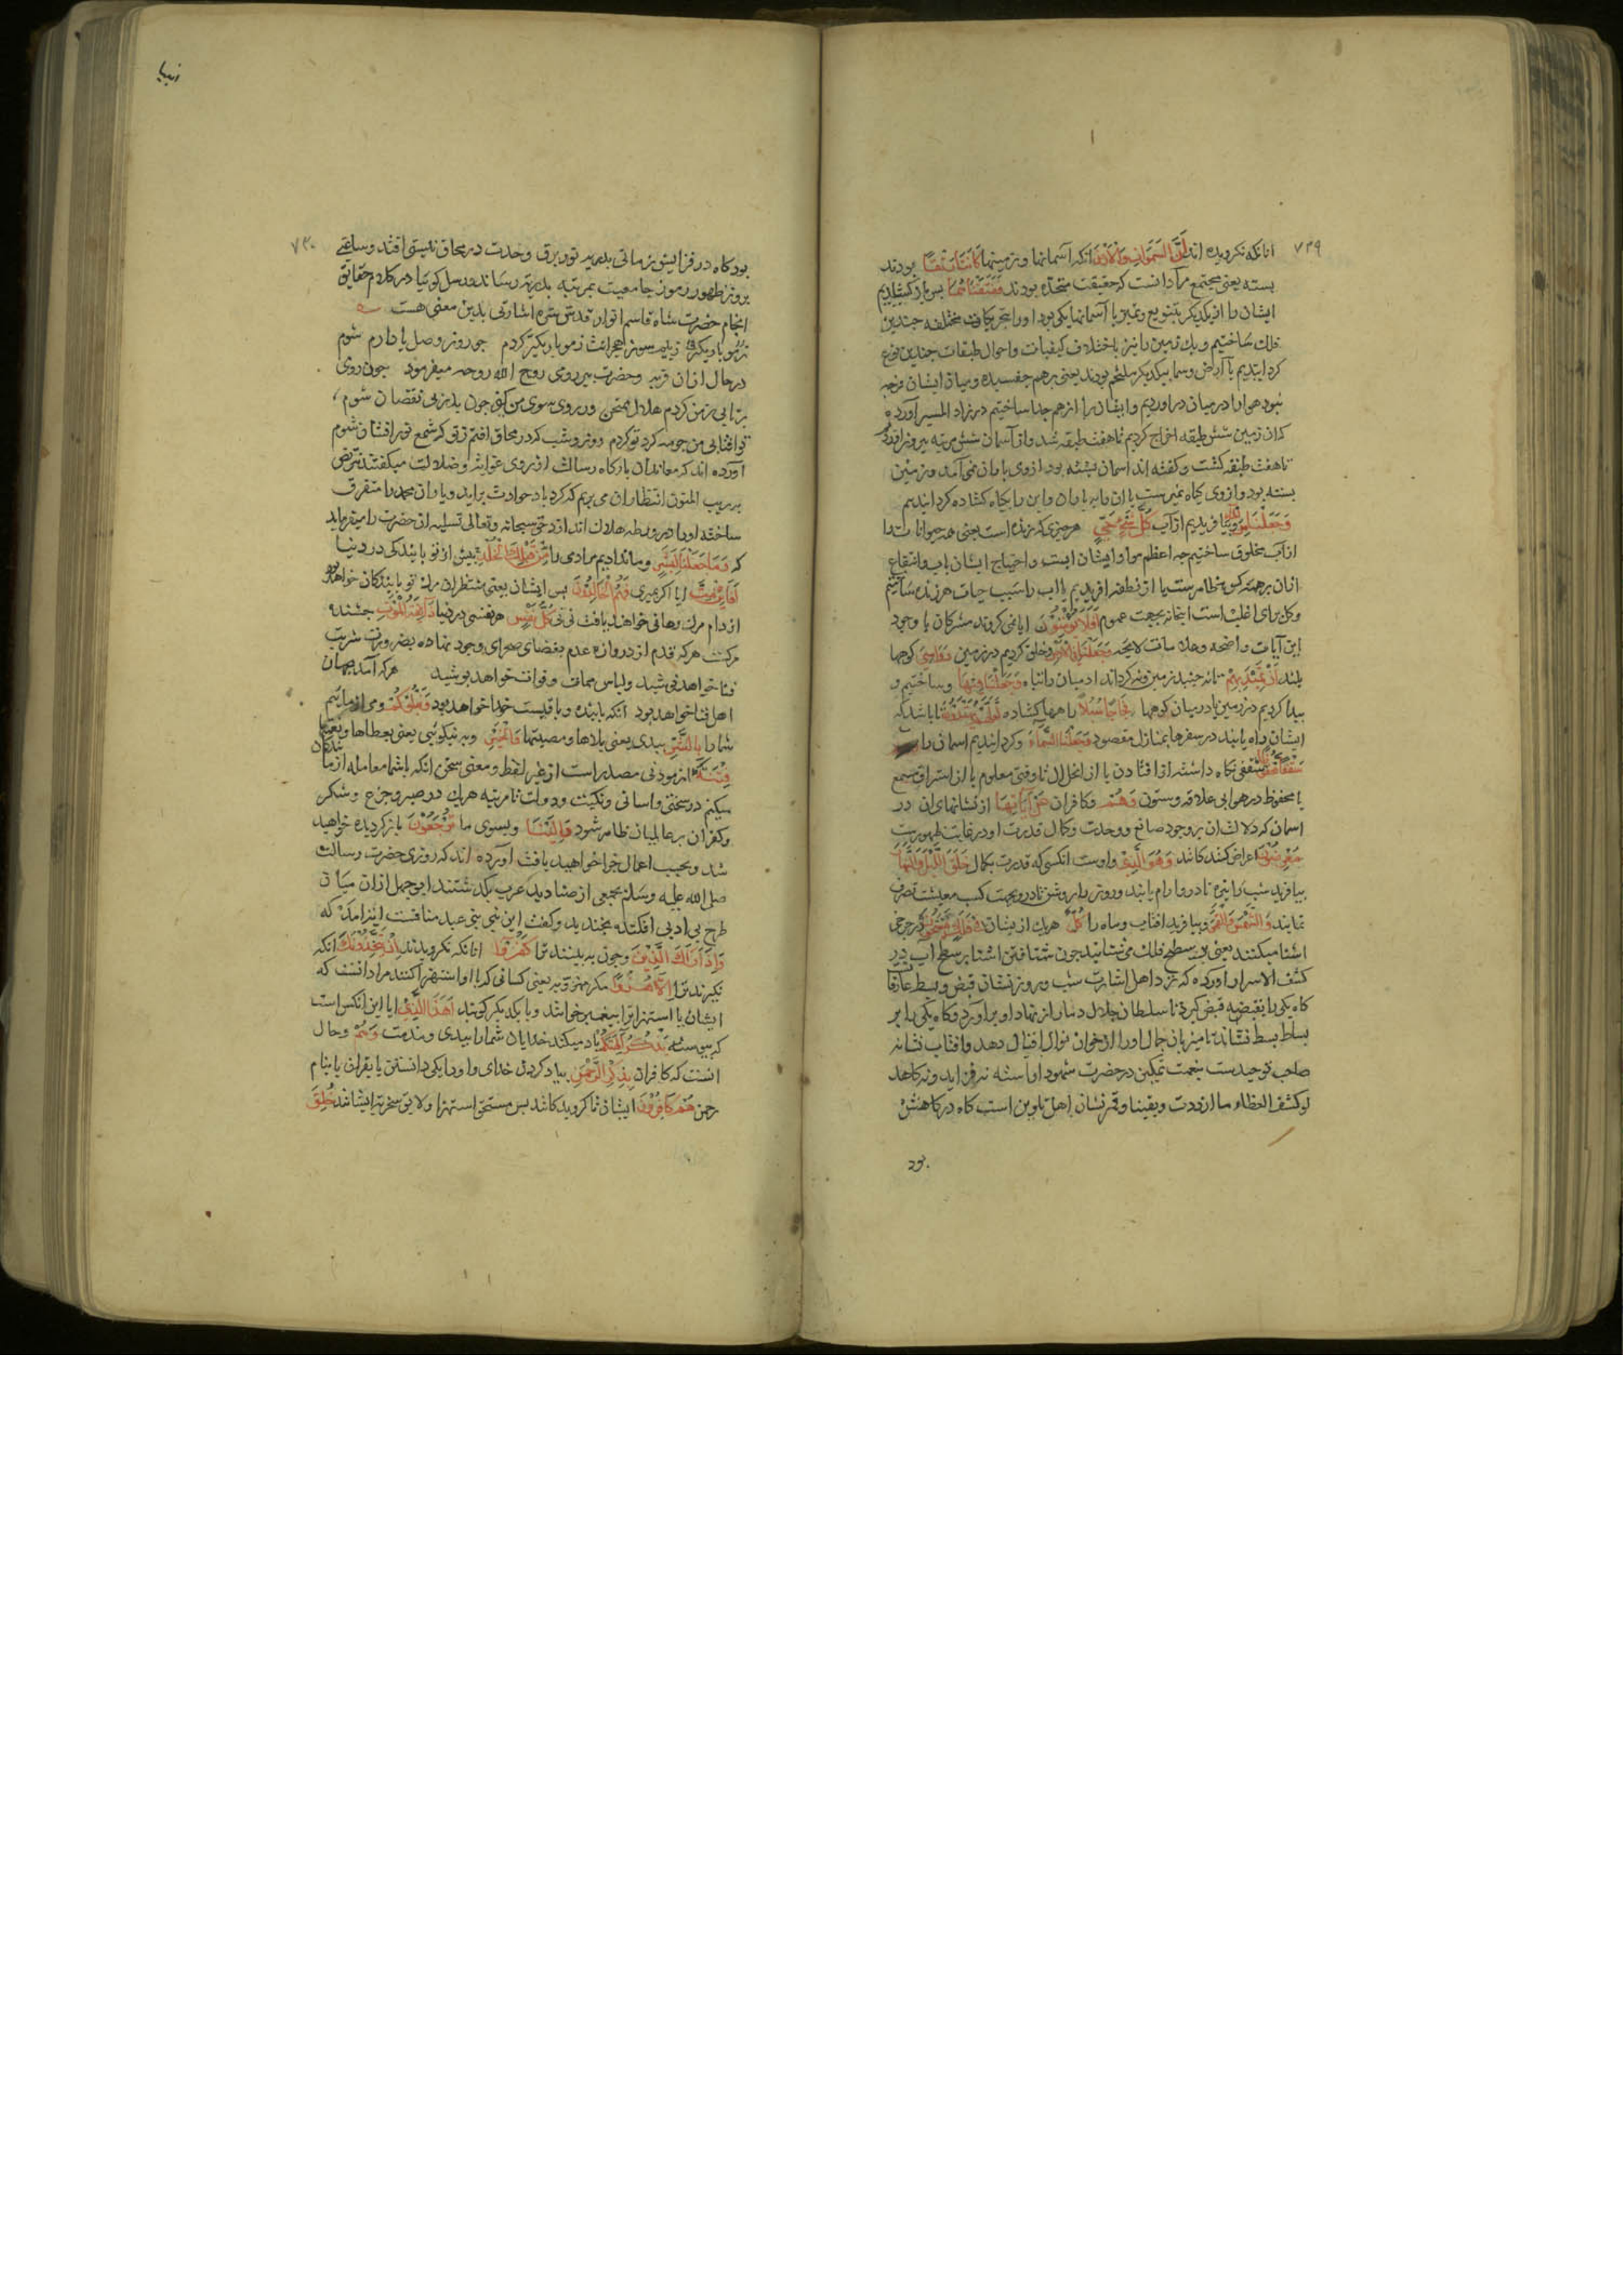 ۷۲۹
انانکه نکرویده اند اَنَّ السَّمٰوَاتِ وَالْاَرْضَ انکه آسمانها و زمینها كَانَتَا رَتْقًا بودند
بسته یعنی مجتمع مراد انست که حقیقت متحده بودند فَفَتَقْنَاهُمَا پس باز کشادیم
ایشان را از یکدیکر بتنویع و تمیز یا آسمانها یکی بود او را بتحریکات مختلفه چندین
فلک ساختیم و یک زمین را نیز باختلاف کیفیات و احوال طبقات چندین نوع
کردانیدیم یا ارض و سما بیکدیکر ملتحم بودند یعنی برهم چفسیده و میان ایشان فرجه
نبود هوا را در میان دراوردیم و ایشان را ازهم جدا ساختیم در زاد المسیر آورده
که از زمین شش طبقه اخراج کردیم تا هفت طبقه شد و از آسمان شش مرتبه بیرون اوردیم
تا هفت طبقه کشت و کفته اند اسمان بسته بود از وی باران نمی آمد و زمین
بسته بود و از وی کیاه نمیرست ان را به باران و این را بکیاه کشاده کردانیدیم
وَجَعَلْنَا مِنَ الْمَاءِ و بیافریدیم از آب كُلَّ شَيْءٍ حَيٍّ هر چیزی که زنده است یعنی همه حیوانات را
از آب مخلوق ساختیم چه اعظم مواد ایشان ابست و احتیاج ایشان باب و انتفاع
ازان بر همه کس ظاهرست یا از نطفه افریدیم یا اب را سبب حیات هر زنده ساختیم
و کل برای اغلب است اینجا نه بجهت عموم اَفَلَا يُؤْمِنُونَ ایا نمی کروند مشرکان با وجود
این آیات واضحه و علامات لایحه وَجَعَلْنَا فِي الْاَرْضِ و خلق کردیم در زمین رَوَاسِيَ کوهها
بلند اَنْ تَمِيدَ بِهِمْ تا نه جنبد زمین و نه کرداند ادمیان را تباه وَجَعَلْنَا فِيهَا و ساختیم و
پیدا کردیم در زمین یا در میان کوهها فِجَاجًا سُبُلًا راهها کشاده لَعَلَّهُمْ يَهْتَدُونَ تا باشد که
ایشان راه یابند در سفرها بمنازل مقصود وَجَعَلْنَا السَّمَاءَ و کردانیدیم اسمان را
سَقْفًا مَحْفُوظًا سقفی نکاه داشته از افتادن یا از انحلال تا وقتی معلوم یا از استراق سمع
یا محفوظ در هوا بی علاقه و ستون وَهُمْ و کافران عَنْ اٰيَاتِهَا از نشانهای ان در
اسمان که دلالت ان بر وجود صانع و وحدت و کمال قدرت او در غایت ظهورست
مُعْرِضُونَ اعراض کنندکانند وَهُوَ الَّذِي و اوست انکسی که قدرت بکمال خَلَقَ اللَّيْلَ وَالنَّهَارَ
بیافرید شب را تیره تا درو ارام یابند و روز را روشن تا درو بجهت کسب معیشت تصرف
نمایند وَالشَّمْسَ وَالْقَمَرَ و بیافرید افتاب و ماه را كُلٌّ هر یک از ایشان فِي فَلَكٍ يَسْبَحُونَ در چرخی
اشنا میکنند یعنی بر سطح فلک می شتابند چون شتافتن اشنا بر سطح اب در
کشف الاسرار اورده که نزد اهل اشارت شب و روز نشان قبض و بسط عارفانست
کاه یکی را بقبضه قبض کیرد تا سلطان جلال دمار از نهاد او براورد و کاه یکی را بر
بساط بسط نشاند تا میزبان جمال او را از خوان نوال اقبال دهد و افتاب نشانه
صاحب توحیدست بنعمت تمکین در حضرت شهود اراسته نه فزاید و نه کاهد
لو کشف الغطاء ما ازددت یقینا و قمر نشان اهل تلوین است کاه در کاهش
بود
انبیا
۷۳۰
بود کاه در فزایش زمانی بدرید نور برق وحدت در محاق نیستی افتد و ساعتی
بروز ظهور رموز جامعیت بمرتبه بدریت رساند در کلام حقایق
انجام حضرت شاه قاسم انوار قدس سره اشارتی بدین معنی هست
ز بیم سوز هجرانت ز مو باریکتر کردم چو روز وصل یاد ارم شوم
در حال ازان فربه و حضرت پیر رومی روح الله روحه میفرمود چون روی
برتابی ز من کردم هلال ممتحن ور روی سوی من کنی چون بدر بی نقصان شوم
تو افتابی من چو مه کرد تو کردم روز و شب که در محاق افتم زتو که شمع نور افشان شوم
آورده اند که معاندان بارکاه رسالت از روی غوایت و ضلالت میکفتند نتربص
به ریب المنون انتظار ان می بریم که کرداب حوادث براید و یاران محمد را متفرق
ساخته او را در ورطه هلاک اندازد حق سبحانه و تعالی تسلیه ان حضرت را میفرماید
که وَمَا جَعَلْنَا لِبَشَرٍ و ما ندادیم مر ادمی را مِنْ قَبْلِكَ الْخُلْدَ پیش از تو پایندکی در دنیا
اَفَاِنْ مِتَّ ایا اکر بمیری فَهُمُ الْخَالِدُونَ پس ایشان یعنی منتظران مرک تو پایندکان خواهند بود
از دام مرک رهائی خواهند یافت نی نی كُلُّ نَفْسٍ هر نفسی در دنیا ذَائِقَةُ الْمَوْتِ چشنده
مرکست هر که قدم از دروازه عدم بفضای صحرای وجود نهاده بضرورت شربت
فنا خواهد نوشید و لباس ممات و فوات خواهد پوشید هر که آمد بجهان
اهل فنا خواهد بود انکه پاینده و باقیست خدا خواهد بود وَنَبْلُوكُمْ و می ازماییم
شما را بِالشَّرِّ ببدی یعنی بلاها و مصیبتها وَالْخَيْرِ و به نیکوئی یعنی بعطاها و نعمتها
فِتْنَةً ازمودنی مصدر است از غیر لفظ و معنی سخن انکه با شما معامله ازمایندکان
میکنم در سختی و اسانی و نکبت و دولت تا مرتبه هر یک در صبر و جزع و شکر
و کفران بر عالمیان ظاهر شود وَاِلَيْنَا و بسوی ما تُرْجَعُونَ باز کردیده خواهید
شد و بحسب اعمال جزا خواهید یافت آورده اند که روزی حضرت رسالت
صلی الله علیه و سلم بجمعی از صنادید عرب بکذشتند ابوجهل ازان میان
طرح بی ادبی افکنده بخندید و کفت این نبی بنی عبد منافست ایت امد که
وَاِذَا رَاٰكَ الَّذِينَ و چون به بینند ترا كَفَرُوا انانکه نکرویدند اِنْ يَتَّخِذُونَكَ انکه
نکیرند ترا اِلَّا هُزُوًا مکر مهزوّ به یعنی کسانی که با او استهزا کنند مراد انست که
ایشان با استهزا ترا پیغمبر خوانند و با یکدیکر کویند اَهٰذَا الَّذِي ایا این انکس است
که پیوسته يَذْكُرُ اٰلِهَتَكُمْ یاد میکند خدایان شما را ببدی و مذمت وَهُمْ و حال
انست که کافران بِذِكْرِ الرَّحْمٰنِ بیاد کردن خدای و او را یکی دانستن یا بقران یا بنام
رحمن هُمْ كَافِرُونَ ایشان ناکرویدکانند پس مستحق استهزا و لایق سخریه ایشانند خُلِقَ